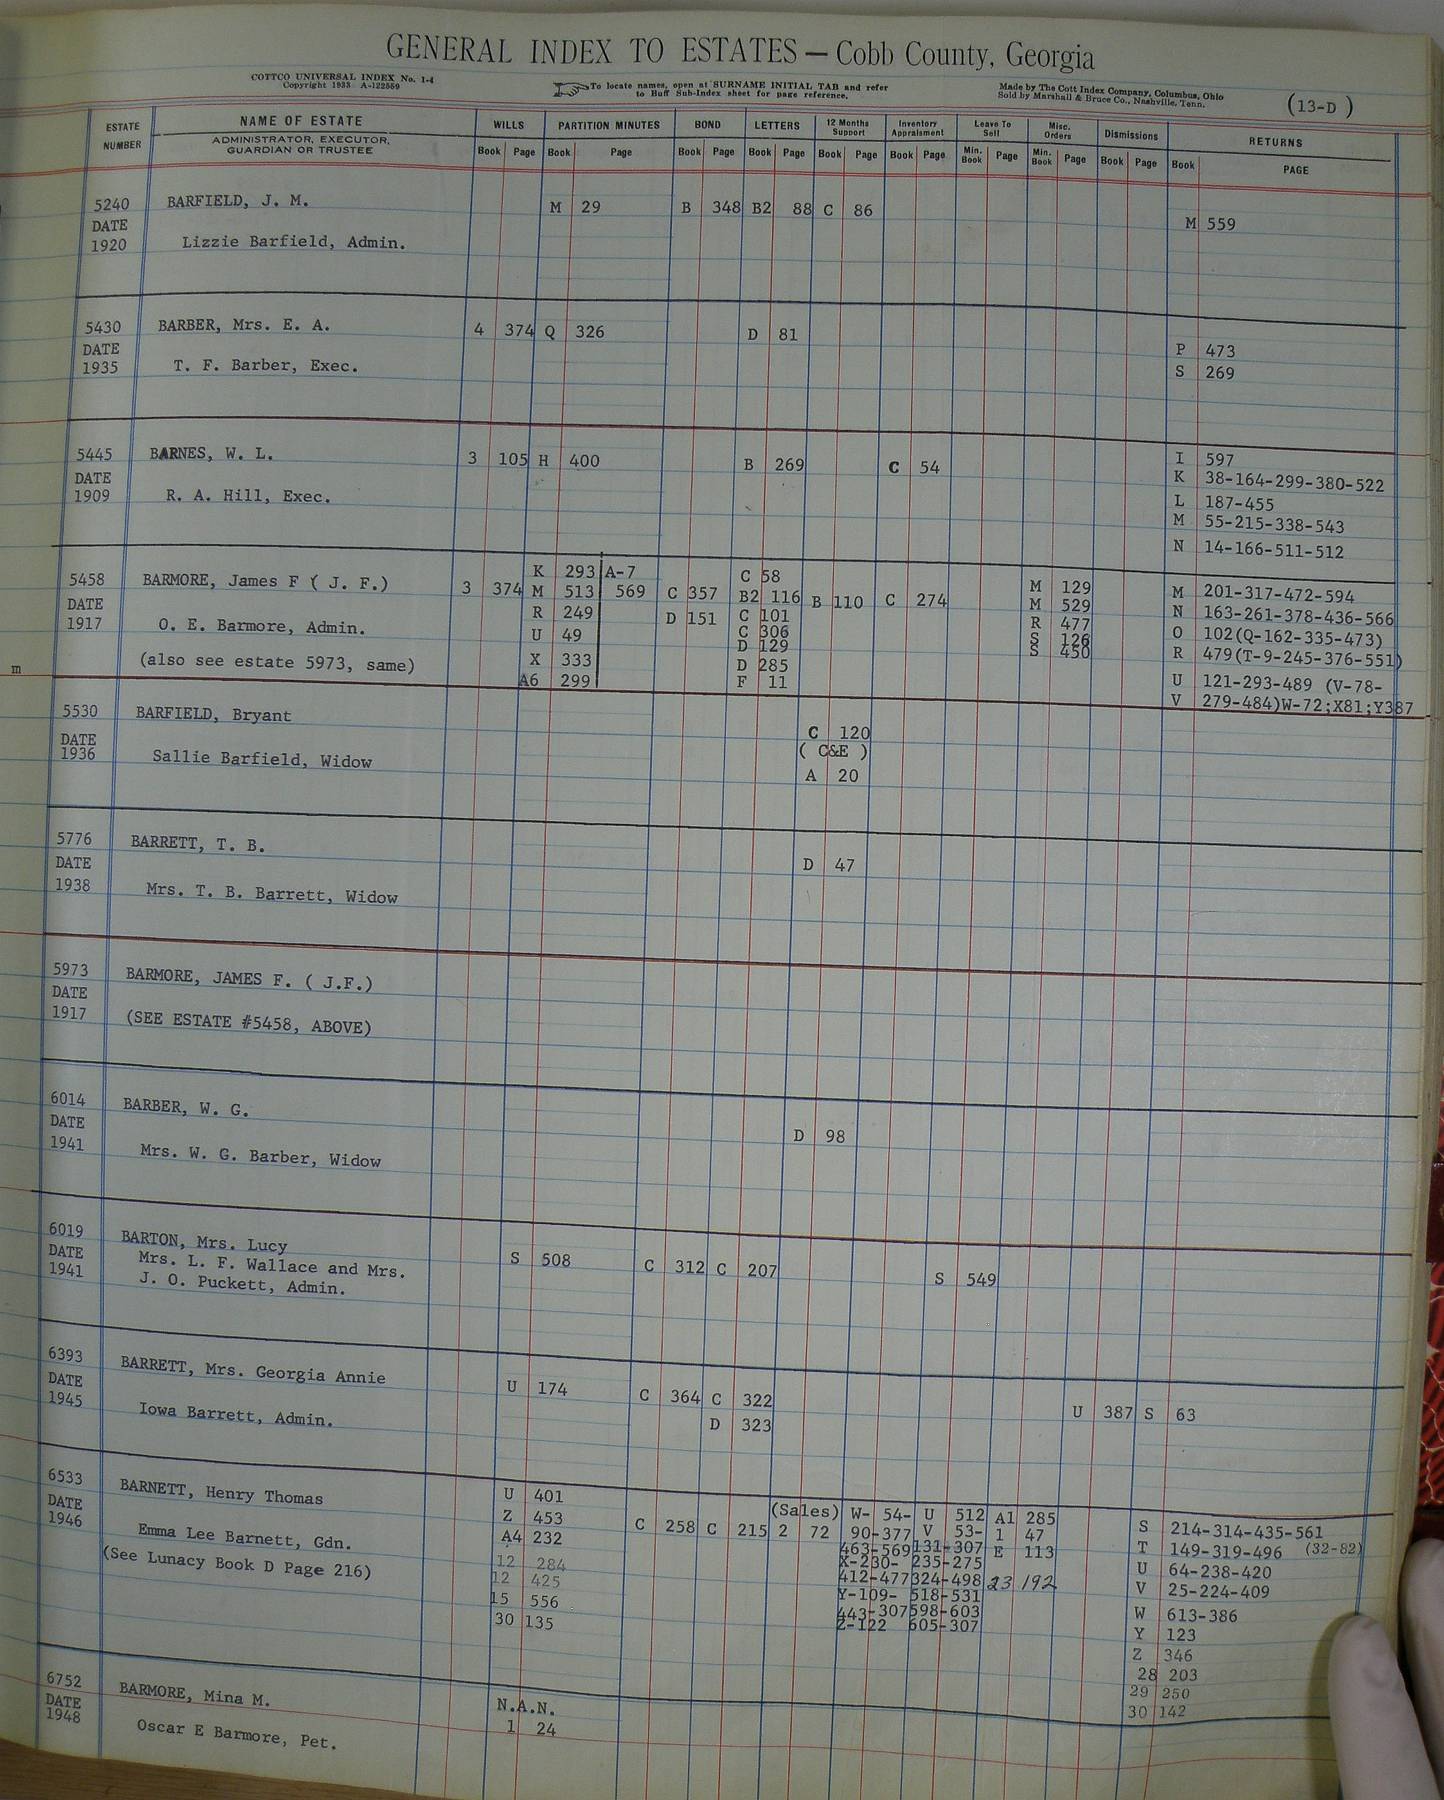 GENERAL INDEX TO ESTATES — Cobb County, Georgia
COTTCO UNIVERSAL INDEX No. 1-4
Copyright 1933 A-122559
To locate names, open at SURNAME INITIAL TAB and refer
to Buff Sub-Index sheet for page reference.
Made by The Cott Index Company, Columbus, Ohio
Sold by Marshall & Bruce Co., Nashville, Tenn.
(13-D )
ESTATE NUMBER
NAME OF ESTATE
ADMINISTRATOR, EXECUTOR,
GUARDIAN OR TRUSTEE
WILLS PARTITION MINUTES BOND LETTERS 12 Months Support Inventory Appraisment Leave To Sell Misc. Orders Dismissions RETURNS
Book Page Book Page Book Page Book Page Book Page Book Page Min. Book Page Min. Book Page Book Page Book PAGE
5240 BARFIELD, J. M. M 29 B 348 B2 88 C 86
DATE M 559
1920 Lizzie Barfield, Admin.
5430 BARBER, Mrs. E. A. 4 374 Q 326 D 81
DATE P 473
1935 T. F. Barber, Exec. S 269
5445 BARNES, W. L. 3 105 H 400 B 269 C 54 I 597
DATE K 38-164-299-380-522
1909 R. A. Hill, Exec. L 187-455
M 55-215-338-543
N 14-166-511-512
K 293 A-7 C 58
5458 BARMORE, James F ( J. F.) 3 374 M 513 569 C 357 B2 116 B 110 C 274 M 129 M 201-317-472-594
DATE R 249 D 151 C 101 M 529 N 163-261-378-436-566
1917 O. E. Barmore, Admin. U 49 C 306 R 477 O 102(Q-162-335-473)
D 129 S 126
(also see estate 5973, same) X 333 D 285 S 450 R 479(T-9-245-376-551)
m
A6 299 F 11 U 121-293-489 (V-78-
V 279-484)W-72;X81;Y387
5530 BARFIELD, Bryant
DATE C 120
1936 Sallie Barfield, Widow ( C&E )
A 20
5776 BARRETT, T. B.
DATE D 47
1938 Mrs. T. B. Barrett, Widow
5973 BARMORE, JAMES F. ( J.F.)
DATE
1917 (SEE ESTATE #5458, ABOVE)
6014 BARBER, W. G.
DATE D 98
1941 Mrs. W. G. Barber, Widow
6019 BARTON, Mrs. Lucy
DATE Mrs. L. F. Wallace and Mrs. S 508 C 312 C 207 S 549
1941 J. O. Puckett, Admin.
6393 BARRETT, Mrs. Georgia Annie
DATE U 174 C 364 C 322 U 387 S 63
1945 Iowa Barrett, Admin. D 323
6533 BARNETT, Henry Thomas U 401 (Sales) W- 54- U 512 A1 285 S 214-314-435-561
DATE Z 453 C 258 C 215 2 72 90-377 V 53- 1 47 T 149-319-496 (32-82)
1946 Emma Lee Barnett, Gdn. A4 232 463-569 131-307 E 113 U 64-238-420
(See Lunacy Book D Page 216) 12 284 X-230- 235-275 V 25-224-409
12 425 412-477 324-498 23 192 W 613-386
15 556 Y-109- 518-531 Y 123
30 135 443-307 598-603 Z 346
Z-122 605-307 28 203
29 250
30 142
6752 BARMORE, Mina M. N.A.N.
DATE 1 24
1948 Oscar E Barmore, Pet.